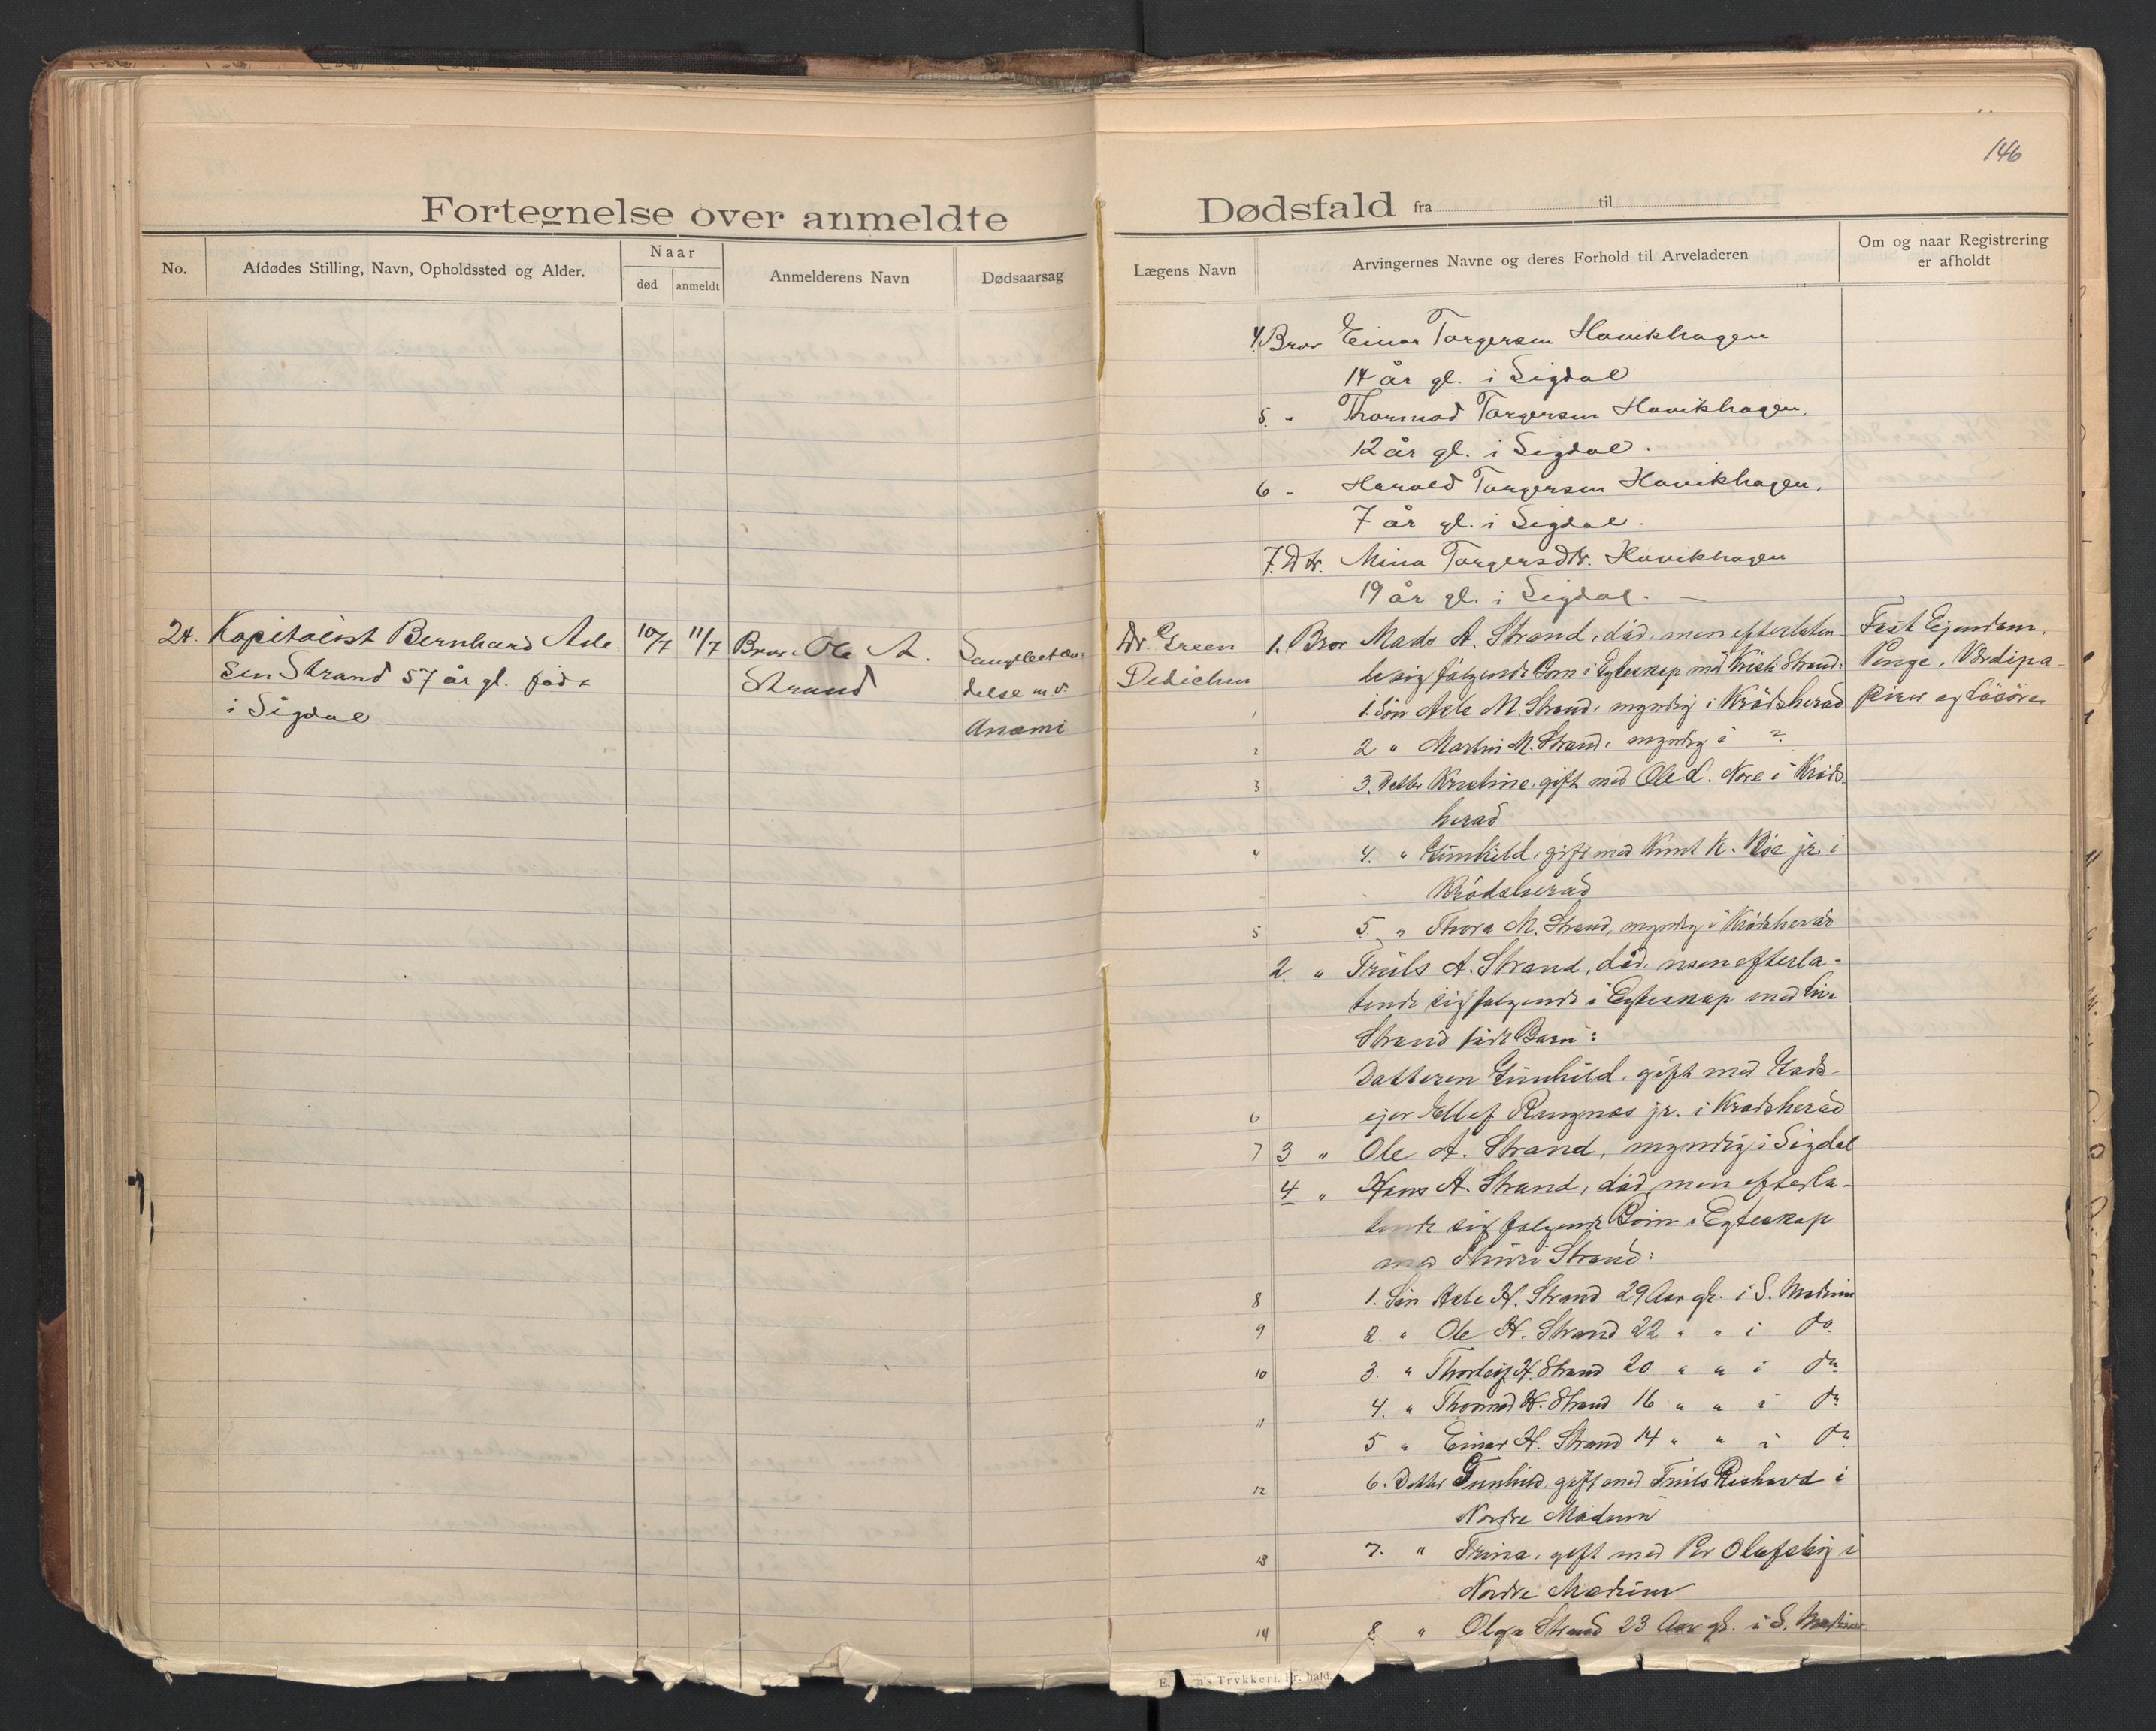 146
Fortegnelse over anmeldte Dødsfald fra til
No.
Afdødes Stilling, Navn, Opholdssted og Alder.
Naar
død
anmeldt
Anmelderens Navn
Dødsaarsag
Lægens Navn
Arvingernes Navne og deres Forhold til Arveladeren
Om og naar Registrering
er afholdt
4. Bror Einar Torgersen Hovikhagen
14 år gl. i Sigdal
5. " Thormod Torgersen Hovikhagen.
12 år gl. i Sigdal.
6 " Harald Torgersen Hovikhagen,
7 år gl. i Sigdal.
7. Dtr. Mina Torgersdtr. Hovikhagen
19 år gl. i Sigdal. —
24. Kapitalist Bernhard Asle-
sen Strand 57 år gl. född
i Sigdal
10/7
11/7
Bror: Ole A.
Strand
Lungebetæn-
delse m. v.
Anæmi
Dr. Green
Dedichen
1. Bror Mads A. Strand, död, men efterlaten-
de sig følgende Børn i Egteskap med Kristi Strand:
1 1. Søn Asle M. Strand, myndig i Krødsherad
2 2 " Martin M. Strand, myndig i ?
3 3. Datter Kristine, gift med Ole L. Nore i Kröds-
herad
4 4. " Gunhild, gift med Knut K. Röe jr. i
Krödsherad
5 5. " Thora M. Strand, myndig i Krödsherad
2. " Truls A. Strand, död, men efterla-
tende sig følgende i Egteskap med Liv
Strand født Barn:
Datteren Gunhild, gift med Gaards-
6 ejer Ellef Ringnes jr. i Krødsherad
7 3 " Ole A. Strand, myndig i Sigdal
4 " Hans A. Strand, död, men efterla-
tende sig følgende Børn i Egteskap
med Thuri Strand:
8 1. Søn Asle H. Strand 29 Aar gl. i S. Modum
9 2. " Ole H. Strand 22 " " i do.
10 3. " Thorleif H. Strand 20 " " i do
11 4. " Thormod H. Strand 16 " " i do
5 " Einar H. Strand 14 " " i do
12 6. Datter Gunhild, gift med Truls Rishovd i
Nordre Modum
13 7. " Trina, gift med Per Olafsby i
Nordre Modum
14 8 " Olga Strand 23 Aar gl. i S. Modum
Fast Ejendom,
Penge, Værdipa-
pirer og Løsøre
's Trykkeri, Fr. hald.